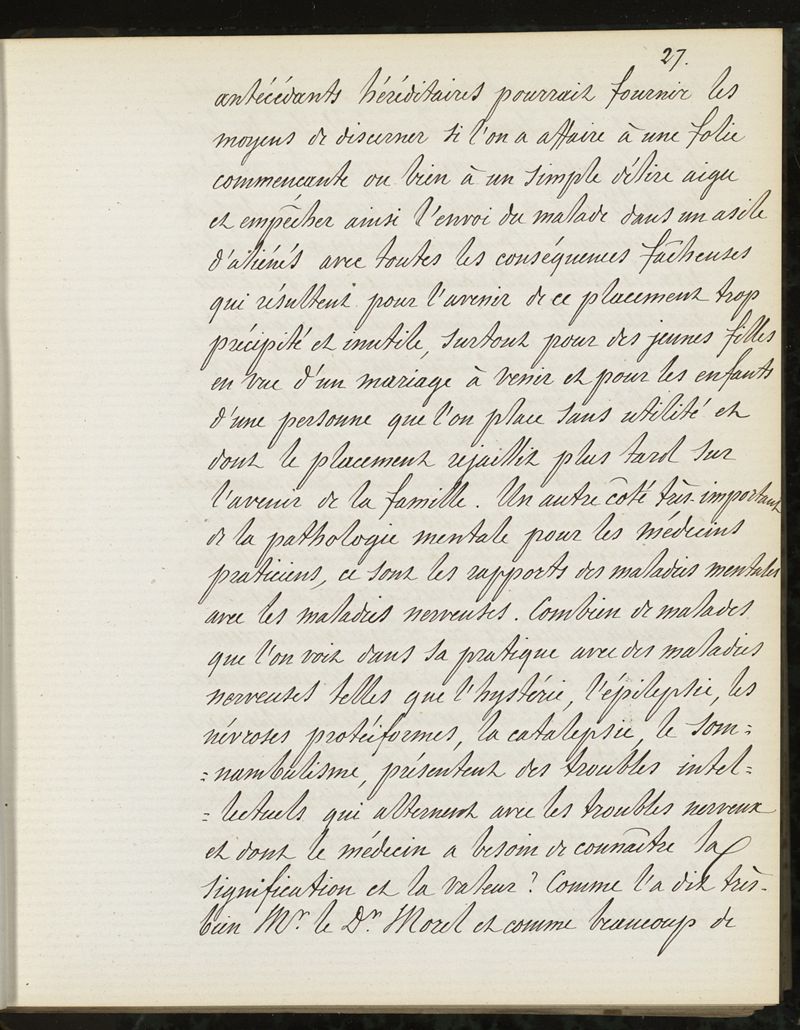 27.
antécédants héréditaires pourrait fournir les
moyens de discerner si l'on a affaire à une folie
commencante ou bien à un simple délire aigu
et empêcher ainsi l'envoi du malade dans un asile
d'aliénés avec toutes les conséquences fâcheuses
qui résultent pour l'avenir de ce placement trop
précipité et inutile, surtout pour des jeunes filles
en vue d'un mariage à venir et pour les enfants
d'une personne que l'on place sans utilité et
dont le placement rejaillit plus tard sur
l'avenir de la famille. Un autre côté très important
de la pathologie mentale pour les médecins
praticiens, ce sont les rapports des maladies mentales
avec les maladies nerveuses. Combien de malades
que l'on voit dans sa pratique avec des maladies
nerveuses telles que l'hystérie, l'épilepsie, les
névroses protéiformes, la catalepsie, le som=
=nambulisme, présentent des troubles intel=
=lectuels qui alternent avec les troubles nerveux
et dont le médecin a besoin de connaître la
signification et la valeur? Comme l'a dit très-
bien Mr. le Dr. Morel et comme beaucoup de